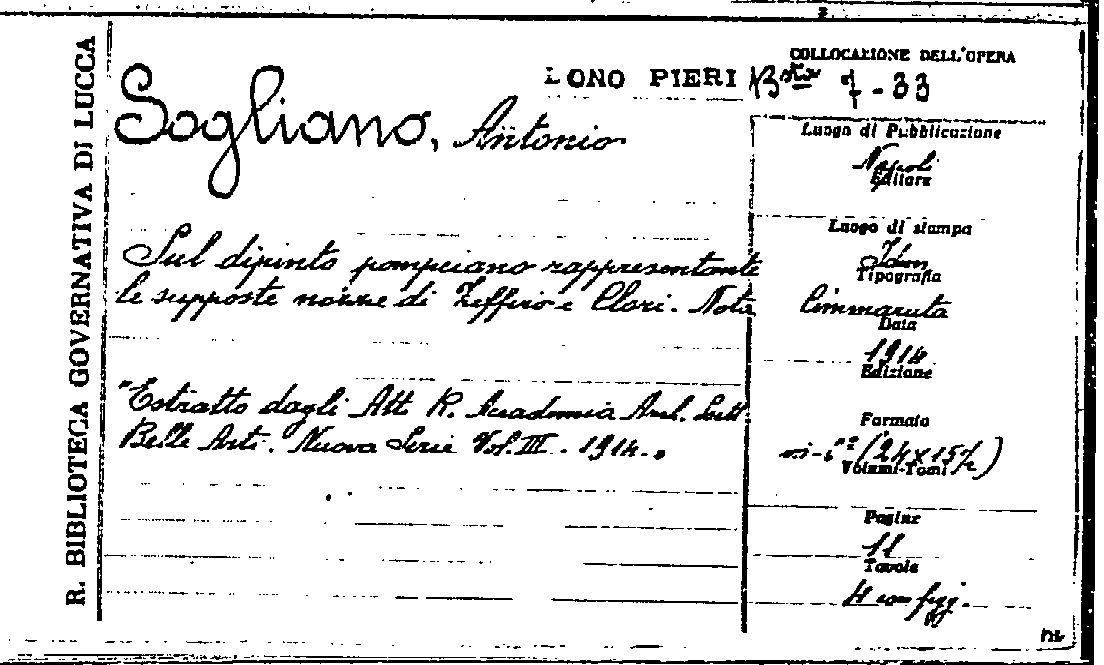 R. BIBLIOTECA GOVERNATIVA DI LUCCA
COLLOCAZIONE DELL'OPERA
ONO PIERI Bta 7-33
Sogliano, Antonio
Luogo di Pubblicazione
Napoli
Editore
Luogo di stampa
Idem
Tipografia
Cimmaruta
Data
1914
Edizione
Sul dipinto pompeiano rappresentante
le supposte nozze di Zeffiro e Clori. Nota
"Estratto dagli Att R. Accademia Arch. Lett.
Belle Arti. Nuova Serie Vol. III. 1914.
Formato
(24x15½)
Volumi-Tomi
Pagine
11
Tavole
4 con figg.